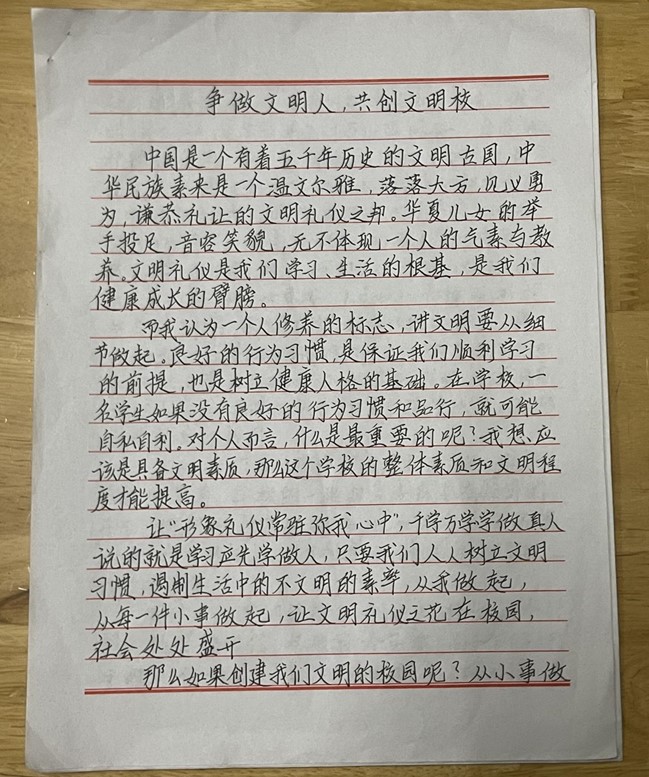 争做文明人，共创文明校
中国是一个有着五千年历史的文明古国，中
华民族素来是一个温文尔雅，落落大方，见义勇
为，谦恭礼让的文明礼仪之邦。华夏儿女的举
手投足，音容笑貌，无不体现一个人的气素与教
养。文明礼仪是我们学习、生活的根基，是我们
健康成长的臂膀。
而我认为一个人修养的标志，讲文明要从细
节做起。良好的行为习惯，是保证我们顺利学习
的前提，也是树立健康人格的基础。在学校，一
名学生如果没有良好的行为习惯和品行，就可能
自私自利。对个人而言，什么是最重要的呢？我想，应
该是具备文明素质，那么这个学校的整体素质和文明程
度才能提高。
让“形象礼仪常驻你我心中”，千学万学学做真人
说的就是学习应先学做人，只要我们人人树立文明
习惯，遏制生活中的不文明的素率，从我做起，
从每一件小事做起，让文明礼仪之花在校园，
社会处处盛开
那么如果创建我们文明的校园呢？从小事做